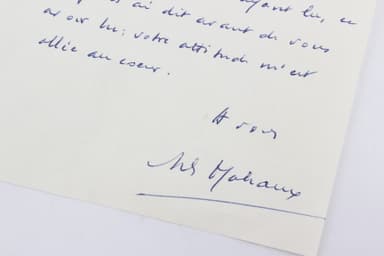 ayant lu, ce
ai dit avant de vous
avoir lu : votre attitude m'est
allée au cœur.
A vous
André Malraux